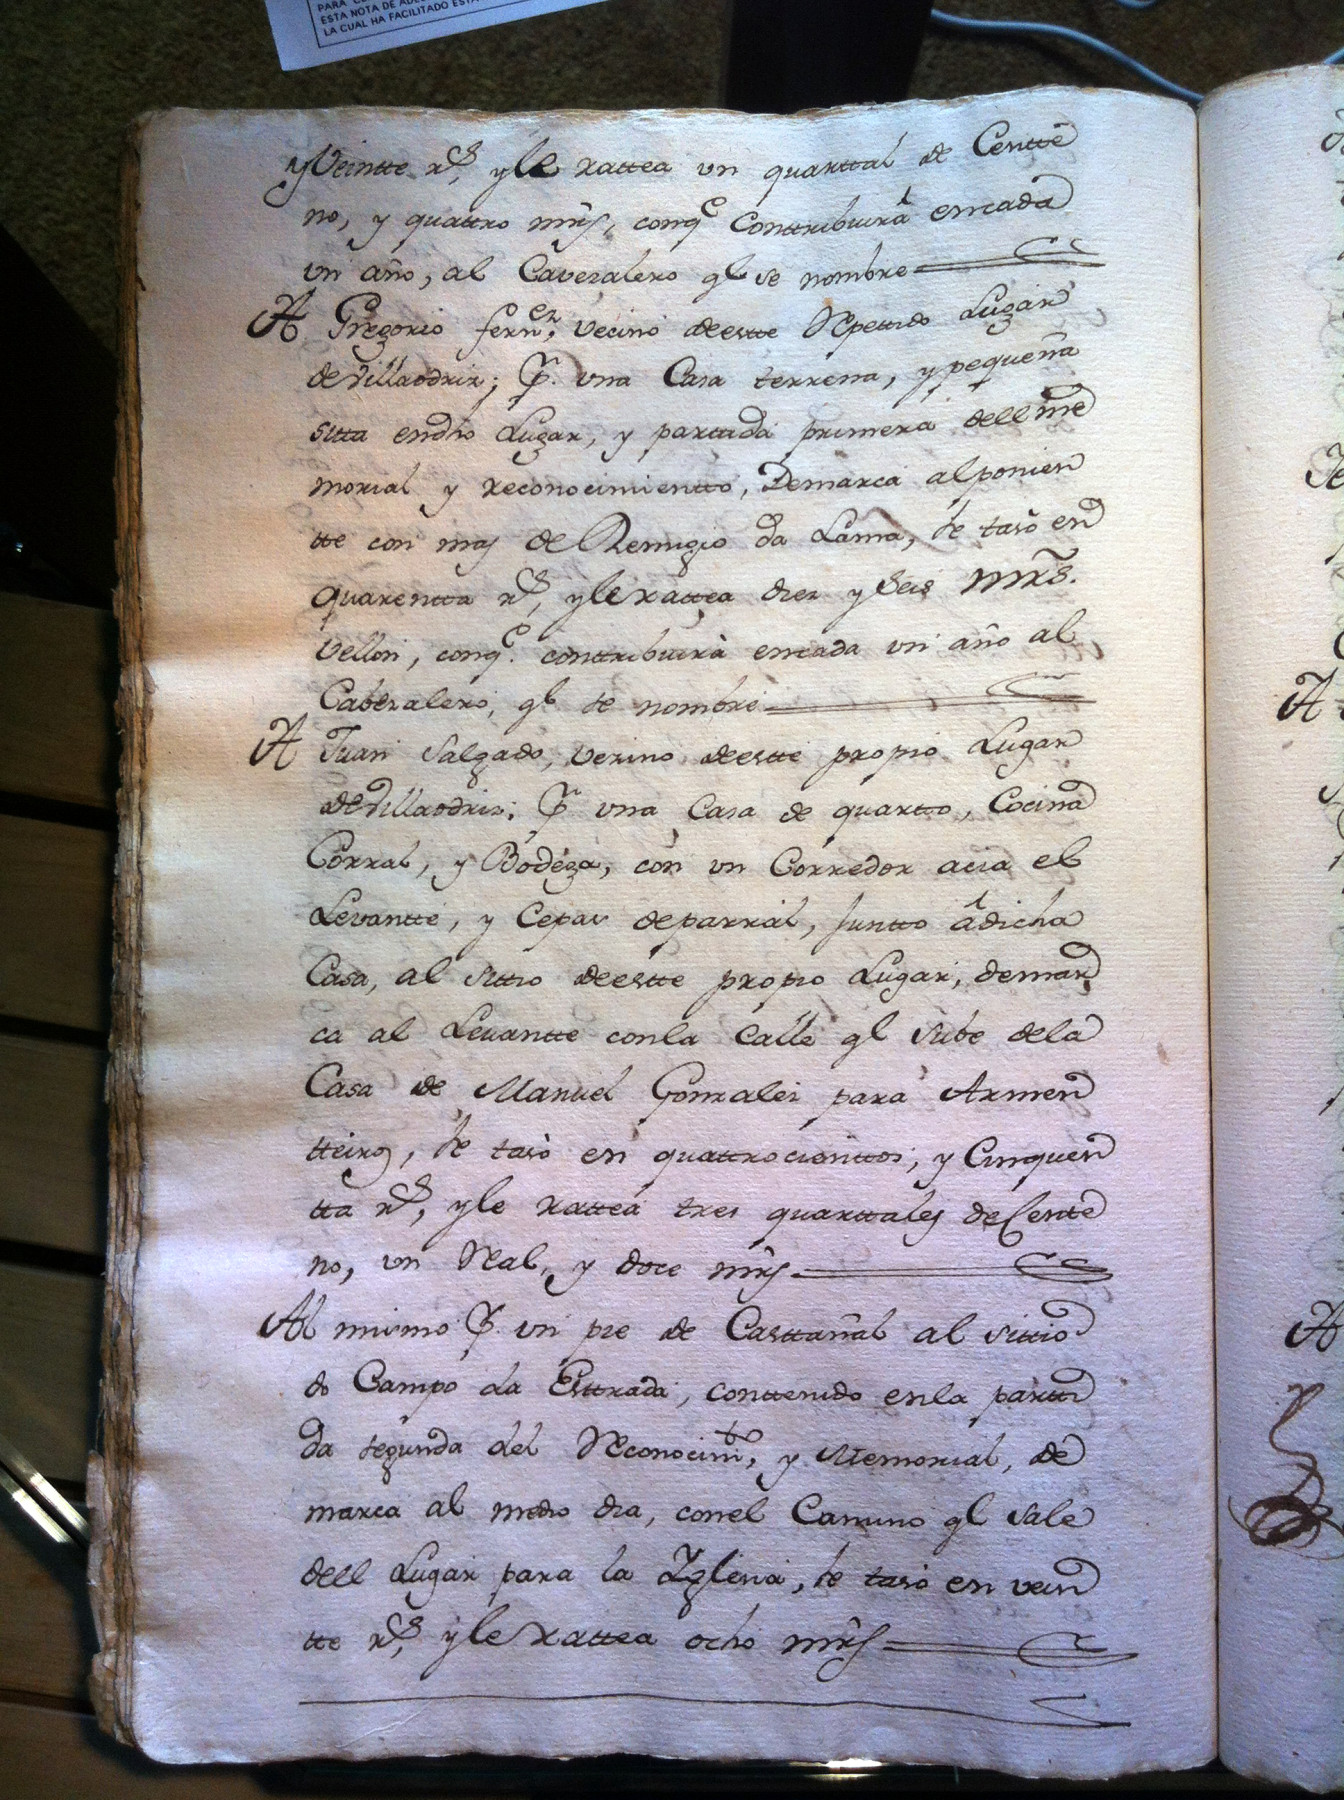 PARA
ESTA NOTA DE ADE
LA CUAL HA FACILITADO ESTA
y Veintte rs, y le rattea un quarttal de Centte
no, y quattro mrs, conqe Conttribuirá encada
un año, al Cavezalero ql se nombre
A Gregorio fernez, vecino deestte Repettido Lugar
de Villaodriz; Pr. una Casa terrena, y pequeña
sitta endho Lugar, y parttida primera dell me
morial y reconocimientto, Demarca alponien
tte con mas de Remigio da Lama, se tasò en
quarentta rs, y le rattea diez y Seis mrs.
vellon, conqe. conttribuirà encada un año al
Cabezalero, ql se nombre
A Juan Salgado, vezino deestte propio Lugar
de Villaodriz; Pr una Casa de quartto, Cocina
Corral, y Bodega, con un Corredor acia el
Levantte, y Cepas deparral, Juntto á dicha
Casa, al sittio deestte propio Lugar, demar
ca al Levantte conla Calle ql sube dela
Casa de Manuel Gonzalez para Armen
tteiros, se tasò en quattrocienttos, y Cinquen
tta rs, y le rattea tres quarttales de Centte
no, un Real, y doce mrs
Al mismo Pr. un pie de Casttañal al sittio
do Campo da Esttrada, conttenido enla partti
da segunda del Reconocimto, y Memorial, de
marca al medio dia, conel Camino ql sale
dell Lugar para la Yglesia, se tasò en vein
tte rs, y le rattea ocho mrs
A
A